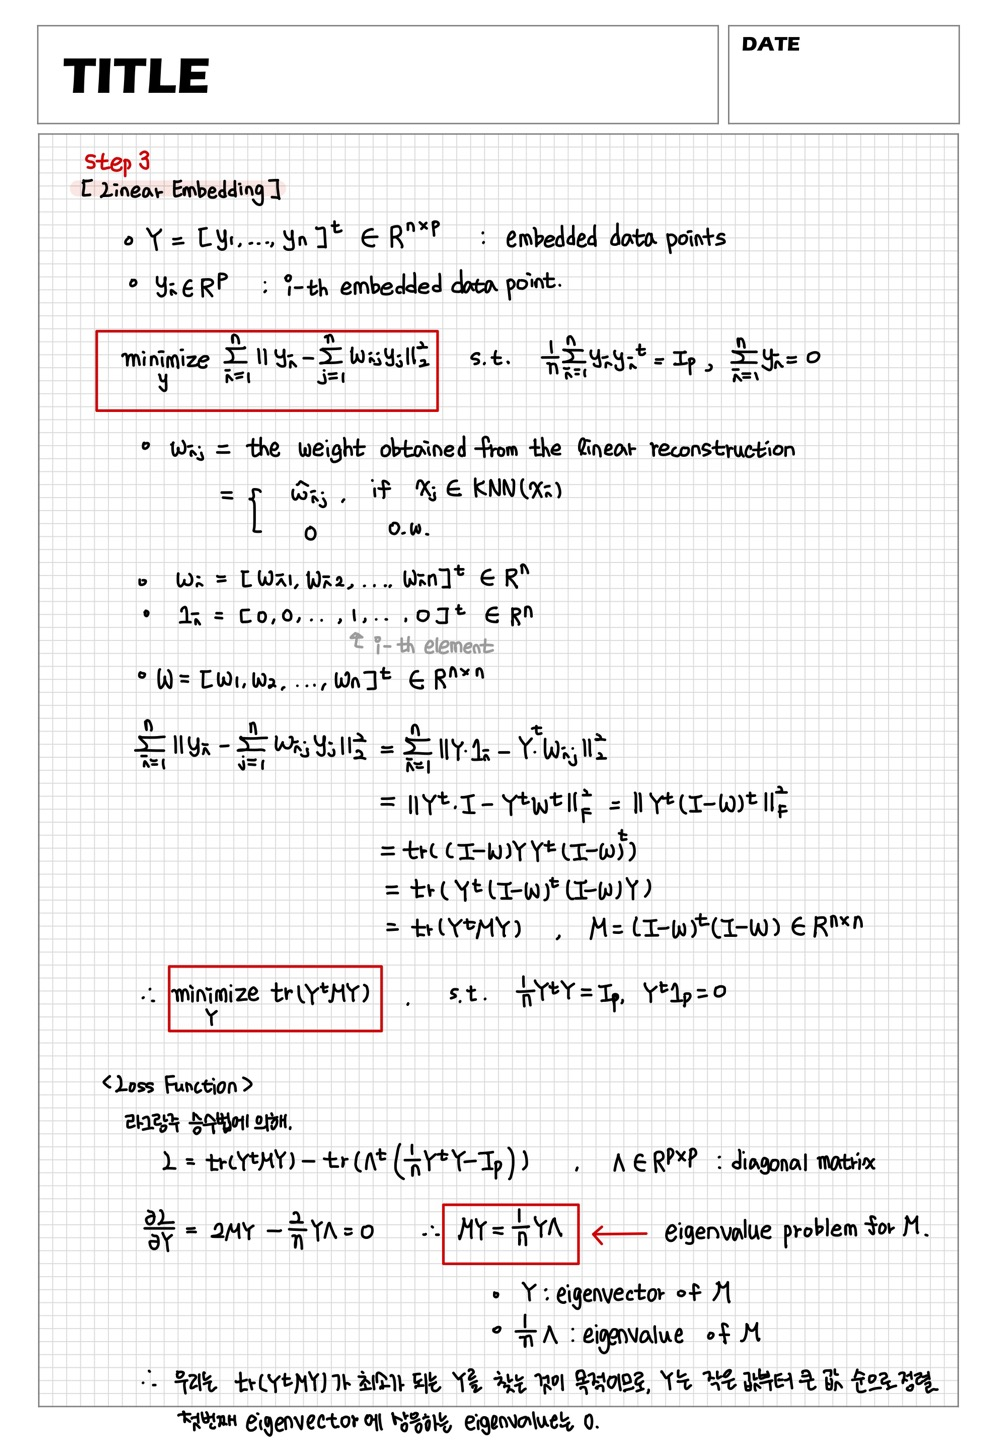 TITLE
DATE
Step 3
[ Linear Embedding ]
∘ Y = [y₁, ..., yₙ]ᵗ ∈ Rⁿˣᵖ : embedded data points
∘ yᵢ ∈ Rᵖ : i-th embedded data point.
minimize_y Σ_{i=1}^{n} ||yᵢ - Σ_{j=1}^{n} wᵢⱼyⱼ||₂² s.t. 1/n Σ_{i=1}^{n} yᵢyᵢᵗ = Iₚ , Σ_{i=1}^{n} yᵢ = 0
∘ wᵢⱼ = the weight obtained from the linear reconstruction
= { ŵᵢⱼ , if xⱼ ∈ KNN(xᵢ)
0 o.w.
∘ wᵢ = [wᵢ₁, wᵢ₂, ..., wᵢₙ]ᵗ ∈ Rⁿ
• 1ᵢ = [0, 0, .., 1, .., 0]ᵗ ∈ Rⁿ
↑ i-th element
• W = [w₁, w₂, ..., wₙ]ᵗ ∈ Rⁿˣⁿ
Σ_{i=1}^{n} ||yᵢ - Σ_{j=1}^{n} wᵢⱼyⱼ||₂² = Σ_{i=1}^{n} ||Y·1ᵢ - Yᵗ·wᵢⱼ||₂²
= ||Yᵗ·I - YᵗWᵗ||_F² = ||Yᵗ(I-W)ᵗ||_F²
= tr((I-W)YYᵗ(I-W)ᵗ)
= tr(Yᵗ(I-W)ᵗ(I-W)Y)
= tr(YᵗMY) , M = (I-W)ᵗ(I-W) ∈ Rⁿˣⁿ
∴ minimize_Y tr(YᵗMY) , s.t. 1/n YᵗY = Iₚ, Yᵗ1ₚ = 0
<Loss Function>
라그랑주 승수법에 의해.
L = tr(YᵗMY) - tr(Λᵗ(1/n YᵗY - Iₚ)) , Λ ∈ Rᵖˣᵖ : diagonal matrix
∂L/∂Y = 2MY - 2/n YΛ = 0 ∴ MY = 1/n YΛ ← eigenvalue problem for M.
• Y : eigenvector of M
∘ 1/n Λ : eigenvalue of M
∴ 우리는 tr(YᵗMY)가 최소가 되는 Y를 찾는 것이 목적이므로, Y는 작은 값부터 큰 값 순으로 정렬
첫번째 eigenvector에 상응하는 eigenvalue는 0.